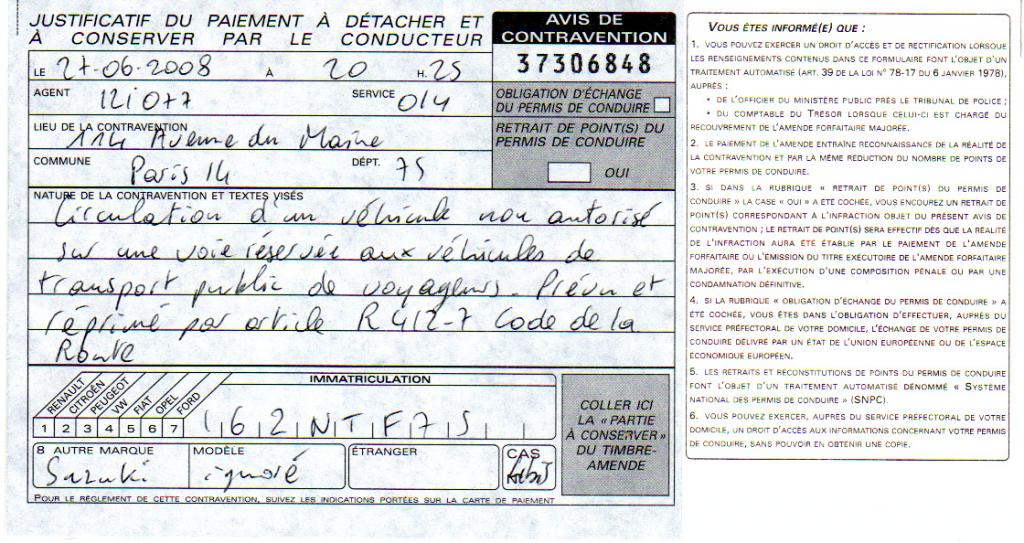 JUSTIFICATIF DU PAIEMENT À DÉTACHER ET
À CONSERVER PAR LE CONDUCTEUR
AVIS DE
CONTRAVENTION
37306848
LE 27-06-2008 À 20 H. 25
AGENT 121077 SERVICE 014
OBLIGATION D'ÉCHANGE
DU PERMIS DE CONDUIRE
LIEU DE LA CONTRAVENTION
114 Avenue du Maine
RETRAIT DE POINT(S) DU
PERMIS DE CONDUIRE
OUI
COMMUNE Paris 14 DÉPT. 75
NATURE DE LA CONTRAVENTION ET TEXTES VISÉS
Circulation d'un véhicule non autorisé
sur une voie réservée aux véhicules de
transport public de voyageurs. Prévu et
réprimé par article R 412-7 Code de la
Route
RENAULT CITROËN PEUGEOT VW FIAT OPEL FORD
1 2 3 4 5 6 7
IMMATRICULATION
162 NTF 75
8 AUTRE MARQUE
Suzuki
MODÈLE
ignoré
ÉTRANGER
CAS
COLLER ICI
LA « PARTIE
À CONSERVER »
DU TIMBRE-
AMENDE
POUR LE RÈGLEMENT DE CETTE CONTRAVENTION, SUIVEZ LES INDICATIONS PORTÉES SUR LA CARTE DE PAIEMENT
VOUS ÊTES INFORMÉ(E) QUE :
1. VOUS POUVEZ EXERCER UN DROIT D'ACCÈS ET DE RECTIFICATION LORSQUE
LES RENSEIGNEMENTS CONTENUS DANS CE FORMULAIRE FONT L'OBJET D'UN
TRAITEMENT AUTOMATISÉ (ART. 39 DE LA LOI N° 78-17 DU 6 JANVIER 1978),
AUPRÈS :
• DE L'OFFICIER DU MINISTÈRE PUBLIC PRÈS LE TRIBUNAL DE POLICE ;
• DU COMPTABLE DU TRÉSOR LORSQUE CELUI-CI EST CHARGÉ DU
RECOUVREMENT DE L'AMENDE FORFAITAIRE MAJORÉE.
2. LE PAIEMENT DE L'AMENDE ENTRAÎNE RECONNAISSANCE DE LA RÉALITÉ DE
LA CONTRAVENTION ET PAR LA MÊME REDUCTION DU NOMBRE DE POINTS DE
VOTRE PERMIS DE CONDUIRE.
3. SI DANS LA RUBRIQUE « RETRAIT DE POINT(S) DU PERMIS DE
CONDUIRE » LA CASE « OUI » A ÉTÉ COCHÉE, VOUS ENCOUREZ UN RETRAIT DE
POINT(S) CORRESPONDANT À L'INFRACTION OBJET DU PRÉSENT AVIS DE
CONTRAVENTION ; LE RETRAIT DE POINT(S) SERA EFFECTIF DÈS QUE LA RÉALITÉ
DE L'INFRACTION AURA ÉTÉ ÉTABLIE PAR LE PAIEMENT DE L'AMENDE
FORFAITAIRE OU L'ÉMISSION DU TITRE EXÉCUTOIRE DE L'AMENDE FORFAITAIRE
MAJORÉE, PAR L'EXÉCUTION D'UNE COMPOSITION PÉNALE OU PAR UNE
CONDAMNATION DÉFINITIVE.
4. SI LA RUBRIQUE « OBLIGATION D'ÉCHANGE DU PERMIS DE CONDUIRE » A
ÉTÉ COCHÉE, VOUS ÊTES DANS L'OBLIGATION D'EFFECTUER, AUPRÈS DU
SERVICE PRÉFECTORAL DE VOTRE DOMICILE, L'ÉCHANGE DE VOTRE PERMIS DE
CONDUIRE DÉLIVRÉ PAR UN ÉTAT DE L'UNION EUROPÉENNE OU DE L'ESPACE
ÉCONOMIQUE EUROPÉEN.
5. LES RETRAITS ET RECONSTITUTIONS DE POINTS DU PERMIS DE CONDUIRE
FONT L'OBJET D'UN TRAITEMENT AUTOMATISÉ DÉNOMMÉ « SYSTÈME
NATIONAL DES PERMIS DE CONDUIRE » (SNPC).
6. VOUS POUVEZ EXERCER, AUPRÈS DU SERVICE PRÉFECTORAL DE VOTRE
DOMICILE, UN DROIT D'ACCÈS AUX INFORMATIONS CONCERNANT VOTRE PERMIS
DE CONDUIRE, SANS POUVOIR EN OBTENIR UNE COPIE.